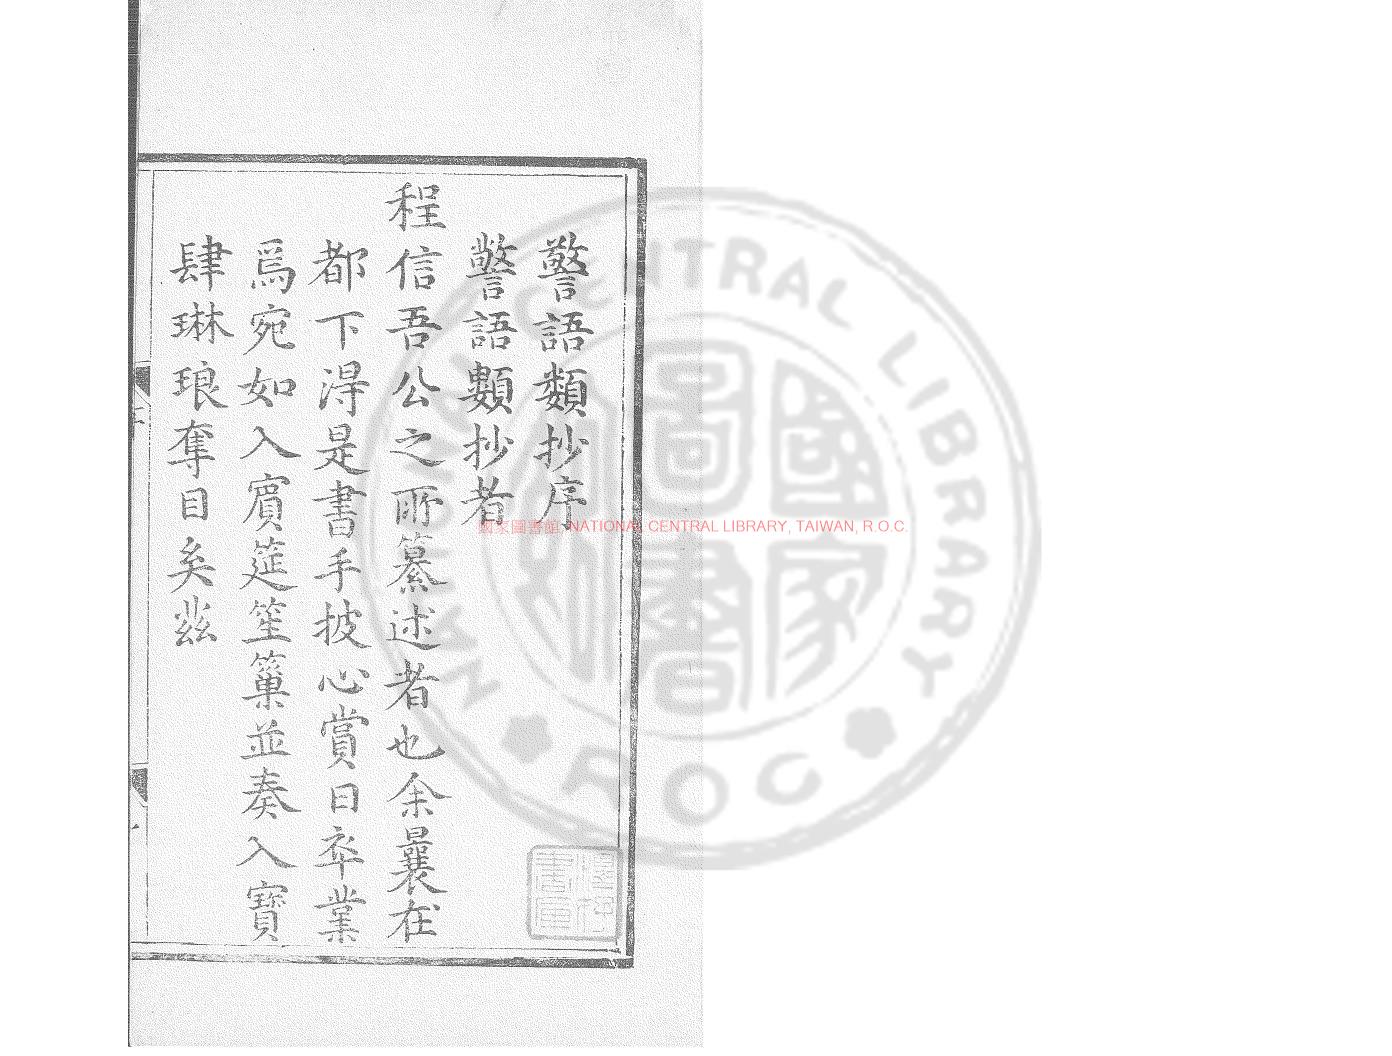 警語類抄序
警語類抄者
程信吾公之所纂述者也余曩在
都下淂是書手披心賞日卒業
焉宛如入賔筵笙篁並奏入寶
肆琳琅奪目矣茲
國家圖書館, NATIONAL CENTRAL LIBRARY, TAIWAN, R.O.C.
CENTRAL LIBRARY
ROC
國家
圖書